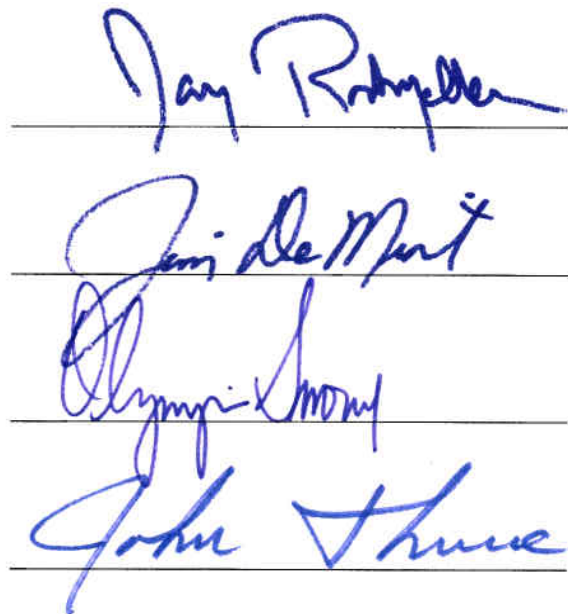 Jay Rockefeller
Jim DeMint
Olympia Snowe
John Thune